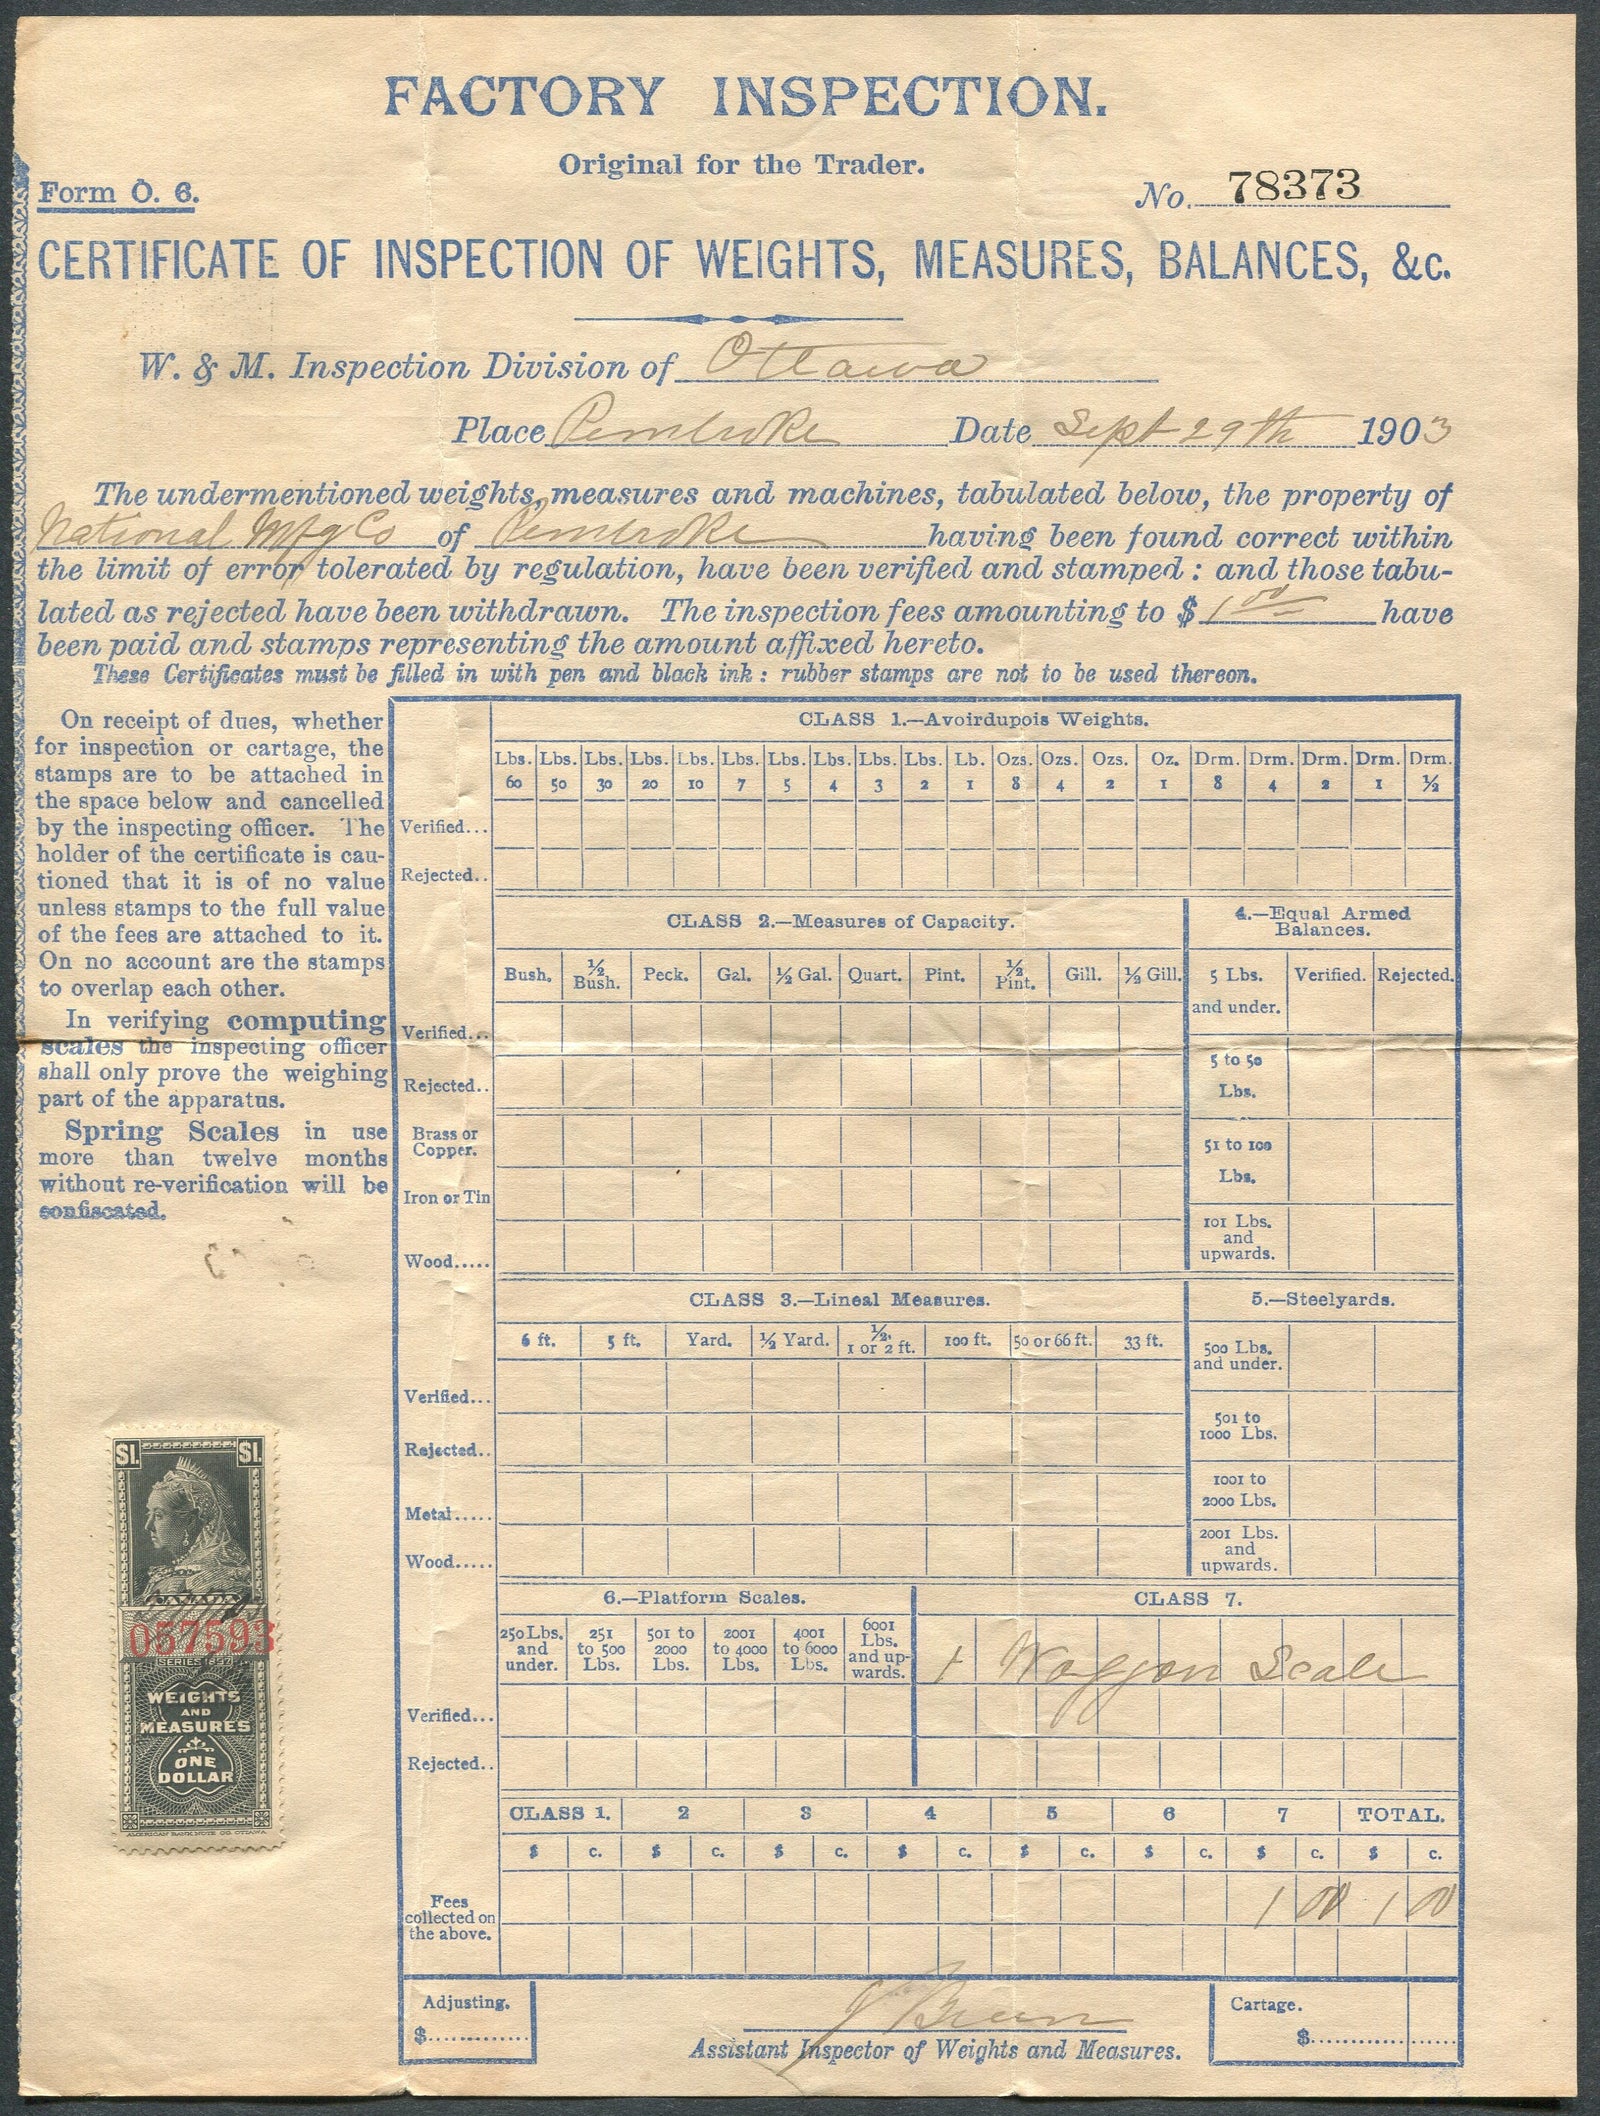 FACTORY INSPECTION.
Original for the Trader.
Form O. 6.
No. 78373
CERTIFICATE OF INSPECTION OF WEIGHTS, MEASURES, BALANCES, &c.
W. & M. Inspection Division of Ottawa
Place Pembroke Date Sept 29th 1903
The undermentioned weights, measures and machines, tabulated below, the property of
National Mfg Co of Pembroke having been found correct within
the limit of error tolerated by regulation, have been verified and stamped : and those tabu-
lated as rejected have been withdrawn. The inspection fees amounting to $ 1 00 have
been paid and stamps representing the amount affixed hereto.
These Certificates must be filled in with pen and black ink : rubber stamps are not to be used thereon.
On receipt of dues, whether
for inspection or cartage, the
stamps are to be attached in
the space below and cancelled
by the inspecting officer. The
holder of the certificate is cau-
tioned that it is of no value
unless stamps to the full value
of the fees are attached to it.
On no account are the stamps
to overlap each other.
In verifying computing
scales the inspecting officer
shall only prove the weighing
part of the apparatus.
Spring Scales in use
more than twelve months
without re-verification will be
confiscated.
$1. $1.
CANADA
057593
SERIES 1897
WEIGHTS
AND
MEASURES
ONE
DOLLAR
AMERICAN BANK NOTE CO. OTTAWA
CLASS 1.—Avoirdupois Weights.
Lbs. Lbs. Lbs. Lbs. Lbs. Lbs. Lbs. Lbs. Lbs. Lbs. Lb. Ozs. Ozs. Ozs. Oz. Drm. Drm. Drm. Drm. Drm.
60 50 30 20 10 7 5 4 3 2 1 8 4 2 1 8 4 2 1 ½
Verified...
Rejected..
CLASS 2.—Measures of Capacity.
Bush. ½ Bush. Peck. Gal. ½ Gal. Quart. Pint. ½ Pint. Gill. ½ Gill.
Verified...
Rejected..
Brass or
Copper.
Iron or Tin
Wood.....
4.—Equal Armed
Balances.
5 Lbs. Verified. Rejected.
and under.
5 to 50
Lbs.
51 to 100
Lbs.
101 Lbs.
and
upwards.
CLASS 3.—Lineal Measures.
6 ft. 5 ft. Yard. ½ Yard. ½, 1 or 2 ft. 100 ft. 50 or 66 ft. 33 ft.
Verified...
Rejected..
Metal.....
Wood.....
5.—Steelyards.
500 Lbs.
and under.
501 to
1000 Lbs.
1001 to
2000 Lbs.
2001 Lbs.
and
upwards.
6.—Platform Scales.
250 Lbs. and under. 251 to 500 Lbs. 501 to 2000 Lbs. 2001 to 4000 Lbs. 4001 to 6000 Lbs. 6001 Lbs. and up-wards.
Verified...
Rejected..
CLASS 7.
1 Waggon Scale
CLASS 1. 2 3 4 5 6 7 TOTAL.
$ c. $ c. $ c. $ c. $ c. $ c. $ c. $ c.
Fees
collected on
the above.
1 00 1 00
Adjusting.
$..............
Assistant Inspector of Weights and Measures.
Cartage.
$....................